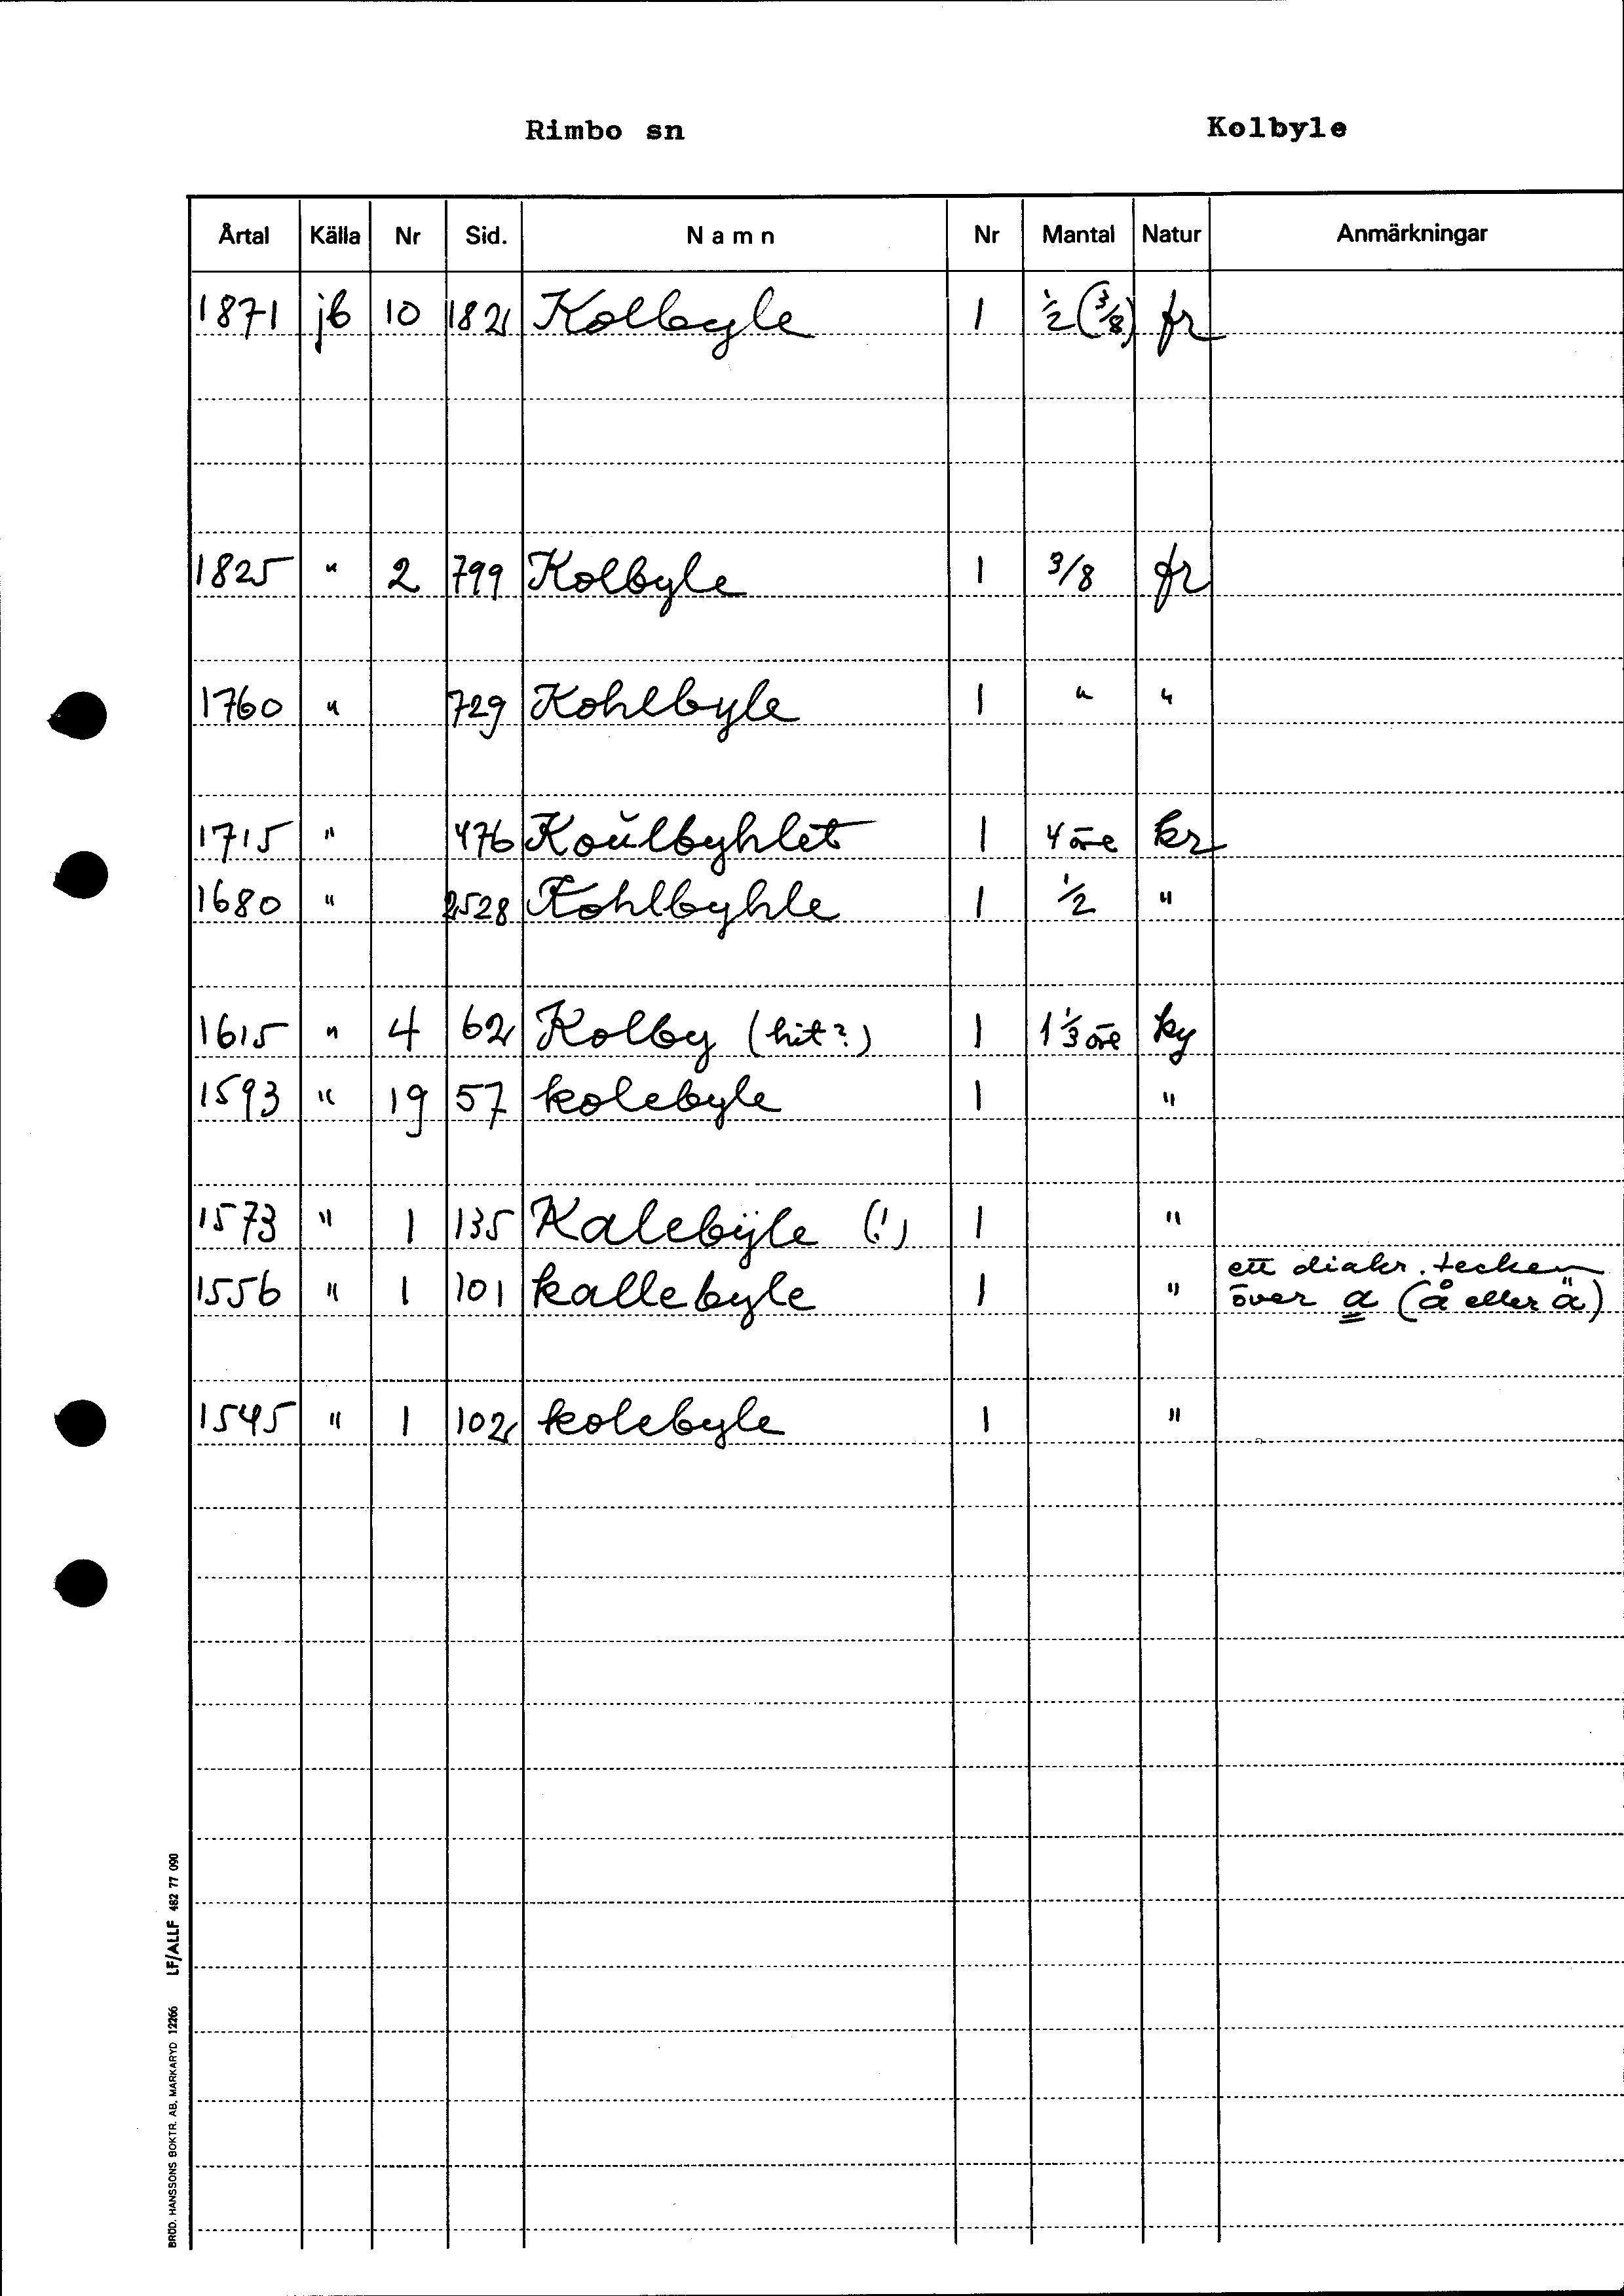 Rimbo sn Kolbyle
Årtal Källa Nr Sid. Namn Nr Mantal Natur Anmärkningar
1871 jb 10 182 Kolbyle 1 1/2 (3/8) fr
1825 " 2 799 Kolbyle 1 3/8 fr
1760 " 729 Kohlbyle 1 " "
1715 " 476 Koŭlbyhlet 1 4 öre kr
1680 " 2528 Kohlbyhle 1 1/2 "
1615 " 4 62 Kolby (hit?) 1 1 1/3 öre ky
1593 " 19 57 kolebyle 1 "
1573 " 1 135 Kalebÿle (!) 1 "
ett diakr. tecken
1556 " 1 101 kallebyle 1 " över a (å eller ä)
1545 " 1 102 kolebyle 1 "
BRÖD. HANSSONS BOKTR. AB, MARKARYD 12266 LF/ALLF 482 77 090